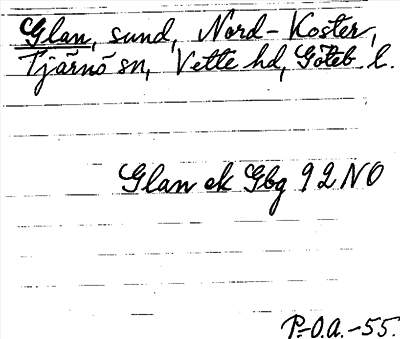 Glan, sund, Nord-Koster,
Tjärnö sn, Vette hd, Göteb. l.
Glan ek Gbg 92 NO
P.-O.A.-55.